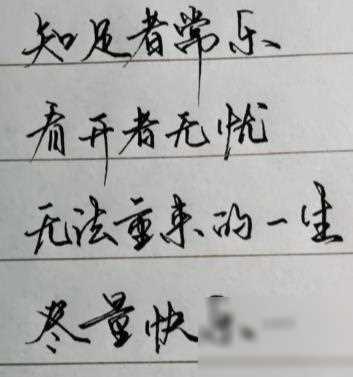 知足者常乐
看开者无忧
无法重来的一生
尽量快